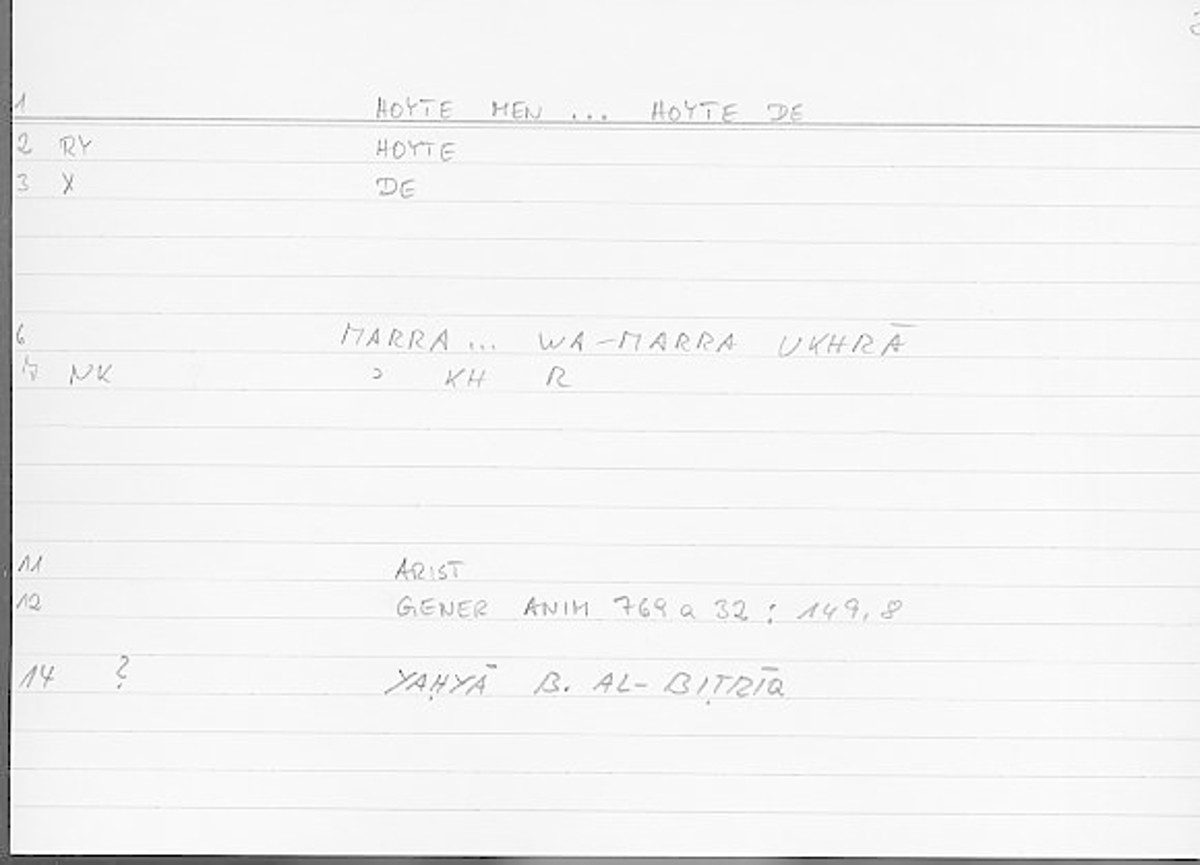 1 HOYTE MEN ... HOYTE DE
2 RY HOYTE
3 X DE
6 MARRA ... WA-MARRA UKHRĀ
7 NK ɔ KH R
11 ARIST
12 GENER ANIM 769 a 32 : 149,8
14 ? YAḤYĀ B. AL-BIṬRĪQ